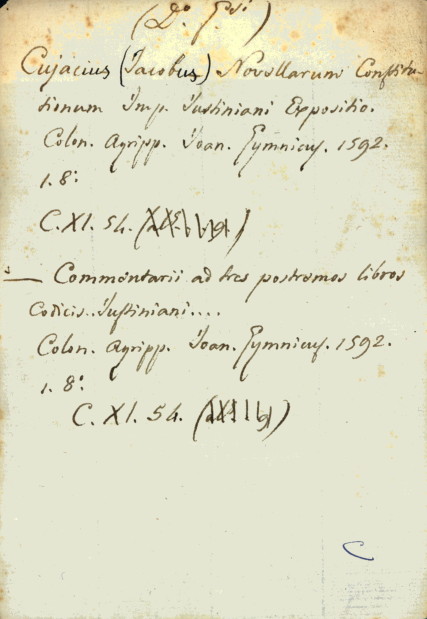 (D.º G.si)
Cujacius (Jacobus) Novellarum Constitu-
tionum Imp. Justiniani Expositio.
Colon. Agripp. Joan. Gymnicus. 1592.
1. 8º
C. XI. 54.
— Commentarii ad tres postremos libros
Codicis Justiniani....
Colon. Agripp. Joan. Gymnicus. 1592.
1. 8º
C. XI. 54.
C